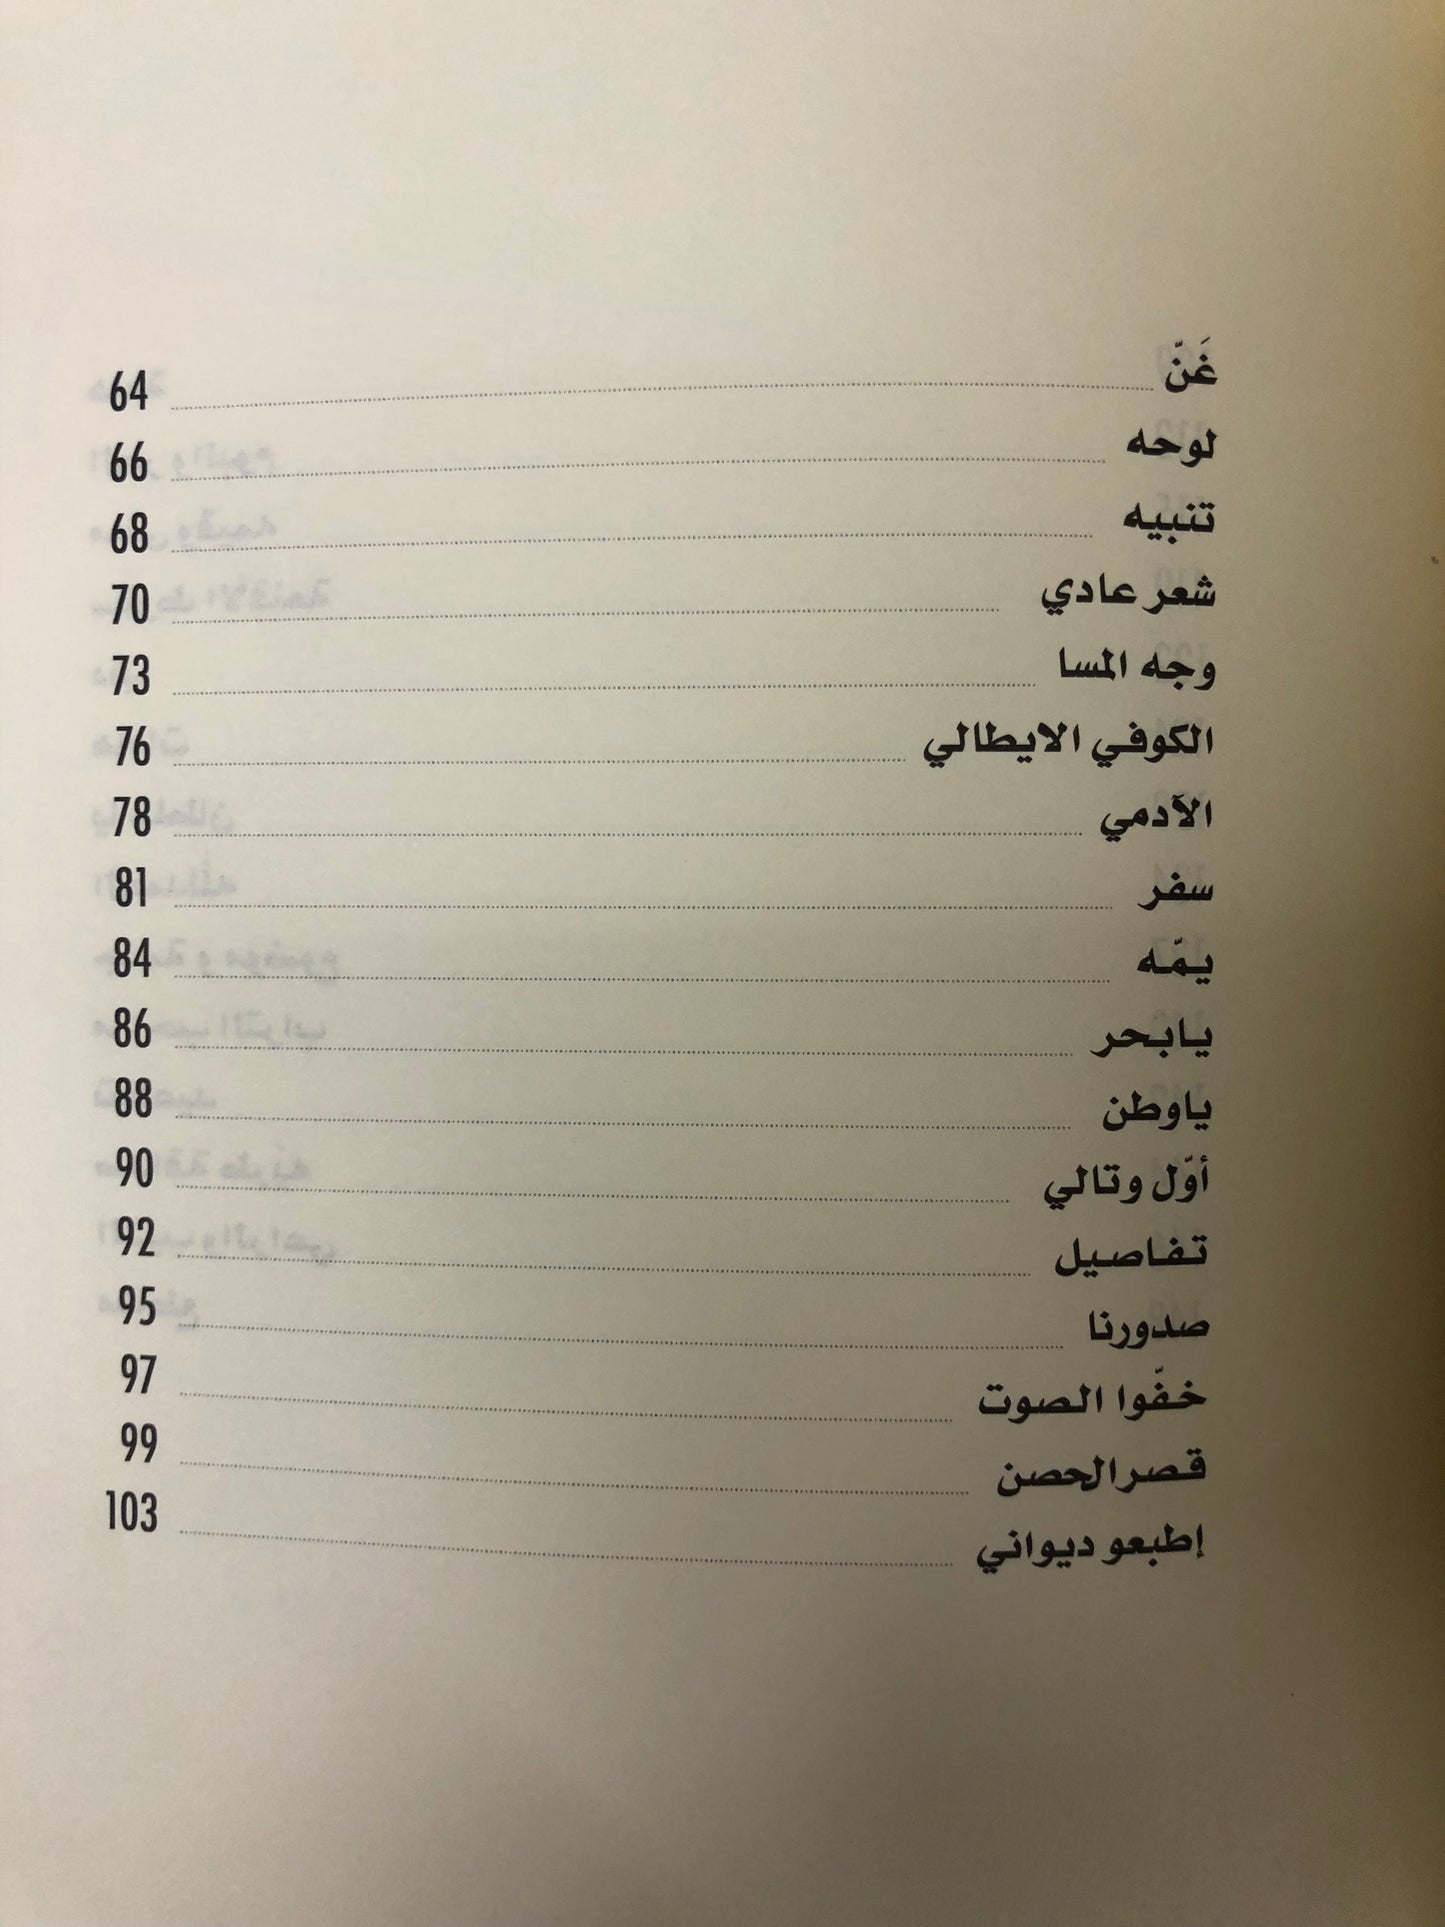 غَنّ 64
لوحه 66
تنبيه 68
شعر عادي 70
وجه المسا 73
الكوفي الايطالي 76
الآدمي 78
سفر 81
يمّه 84
يابحر 86
ياوطن 88
أوّل وتالي 90
تفاصيل 92
صدورنا 95
خفّوا الصوت 97
قصر الحصن 99
إطبعو ديواني 103